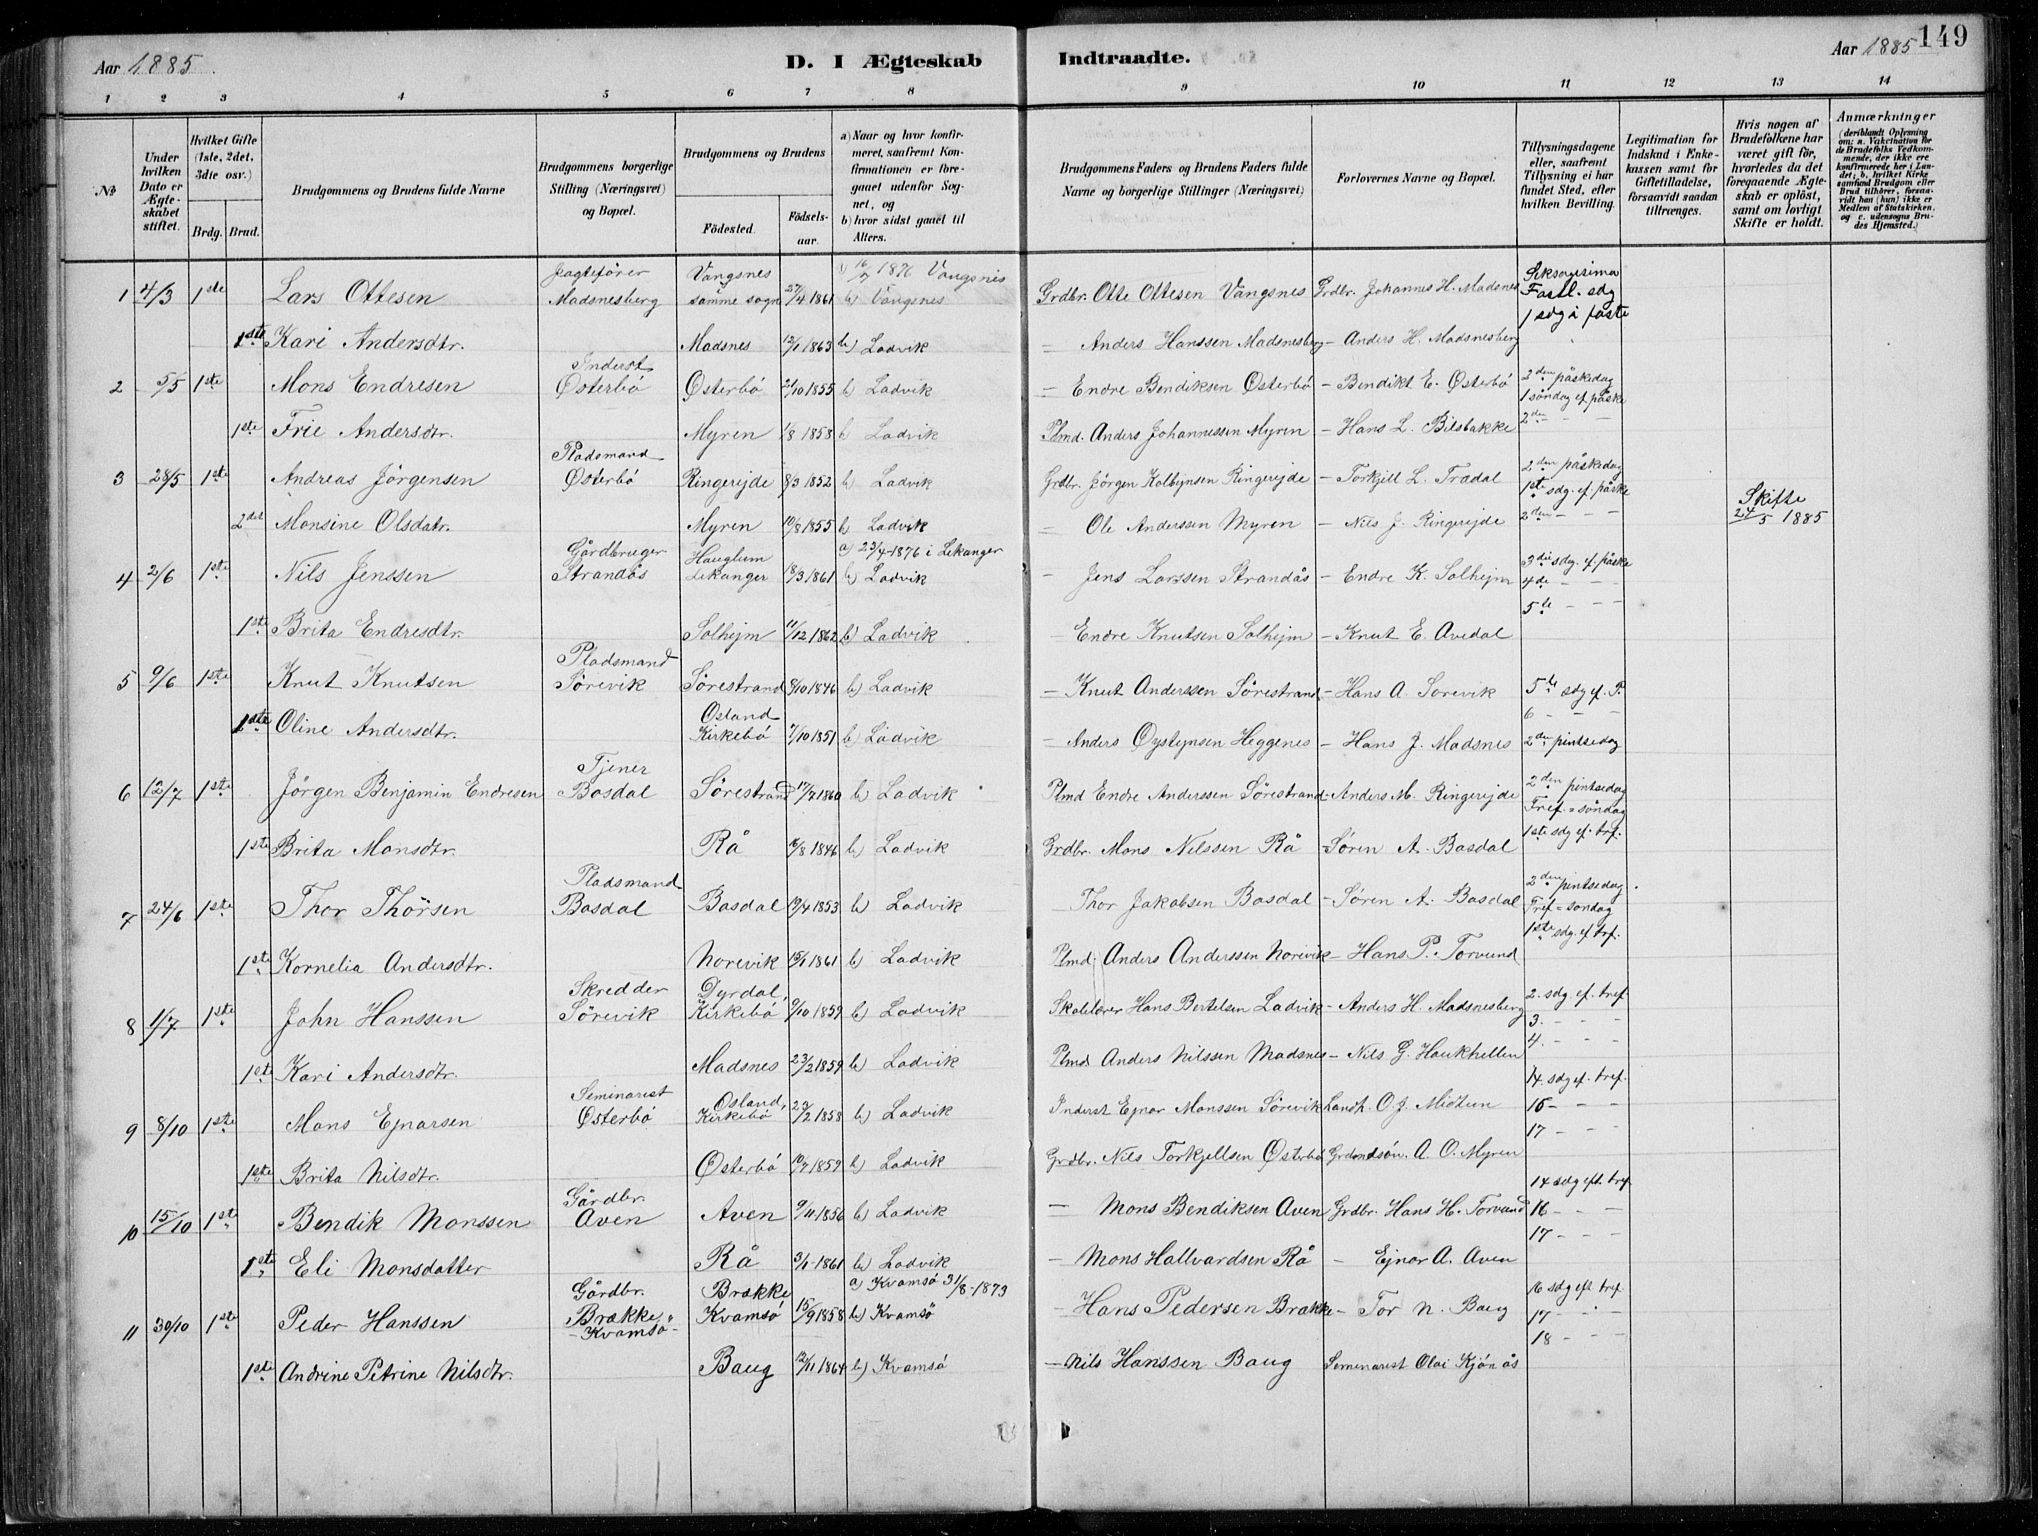 149
Aar 1885. D. I Ægteskab Indtraadte. Aar 1885
1 2 3 4 5 6 7 8 9 10 11 12 13 14
№ Under hvilken Dato er Ægteskabet stiftet. Hvilket Gifte (1ste, 2det, 3die osv.) Brdg. Brud. Brudgommens og Brudens fulde Navne Brudgommens borgerlige Stilling (Næringsvei) og Bopæl. Brudgommens og Brudens Födested. Födselsaar. a) Naar og hvor konfirmeret, saafremt Konfirmationen er foregaaet udenfor Sognet, og b) hvor sidst gaaet til Alters. Brudgommens Faders og Brudens Faders fulde Navne og borgerlige Stillinger (Næringsvei) Forlovernes Navne og Bopæl. Tillysningsdagene eller, saafremt Tillysning ei har fundet Sted, efter hvilken Bevilling. Legitimation for Indskud i Enkekassen samt for Giftetilladelse, forsaavidt saadan tiltrænges. Hvis nogen af Brudefolkene har været gift för, hvorledes da det foregaaende Ægteskab er oplöst, samt om lovligt Skifte er holdt. Anmærkninger (deriblandt Oplysning om: a. Vakcination for de Brudefolks Vedkommende, der ikke ere konfirmerede her i Landet; b. hvilket Kirkesamfund Brudgom eller Brud tilhörer, forsaavidt han (hun) ikke er Medlem af Statskirken, og c. udensogns Brudes Hjemsted.)
1 4/3 1ste Lars Ottesen Jagtefører Madsnesberg Vangsnes samme sogn 27/4 1861 a) 16/7 1876 Vangsnis b) Vangsnes Grdbr. Otte Ottesen Vangsnes Grdbr. Johannes H. Madsnes Seksagesima Fastl. sdg 1 sdg i faste
1ste Kari Andersdtr. Madsnes 12/1 1863 b) Ladvik – Anders Hanssen Madsnesberg – Anders H. Madsnesberg
2 5/5 1ste Mons Endresen Inderst Østerbö Østerbö 21/10 1855 b) Ladvik – Endre Bendiksen Østerbö – Bendikt E. Østerbö 2den påskedag 1 söndag ef påske
1ste Frie Andersdtr. Myren 1/8 1858 b Ladvik Plmd. Anders Johannessen Myren – Hans L. Bilsbakke 2den – –
3 28/5 1ste Andreas Jörgensen Pladsmand Østerbö Ringerejde 8/3 1852 b) Ladvik Grdbr. Jörgen Kolbejnsen Ringerejde – Torkjell L. Tradal 2den påskedag 1ste sdg. ef. påske
2det Monsine Olsdatr. Myren 10/8 1855 b) Ladvik – Ole Anderssen Myren – Nils J. Ringerejde 2den – – – Skifte 24/5 1885
4 2/6 1ste Nils Jenssen Gårdbruger Strandås Hauglum Lekanger 18/3 1861 a) 23/4 1876 i Lekanger b) Ladvik – Jens Larssen Strandås – Endre K. Solhejm 3die sdg. ef. påske 4de – – – 5te – – –
1ste Brita Endresdtr. Solhejm 11/12 1862 b) Ladvik – Endre Knutsen Solhejm – Knut E. Avedal
5 9/6 1ste Knut Knutsen Pladsmand Sörevik Sörestrand 8/10 1846 b) Ladvik – Knut Anderssen Sörestrand – Hans A. Sorevik 5te sdg ef. P. 6 – – –
1ste Oline Andersdtr. Osland Kirkebö 7/10 1851 b) Ladvik – Anders Oystejnsen Heggenes – Hans J. Madsnes 2den pintsedag
6 12/7 1ste Jörgen Benjamin Endresen Tjener Basdal Sörestrand 17/7 1860 b) Ladvik Plmd Endre Anderssen Sörestrand – Anders M. Ringerejde 2den pintsedag Tref = söndag
1ste Brita Monsdtr. Rå 16/8 1846 b) Ladvik Grdbr. Mons Nilssen Rå – Sören A. Basdal 1ste sdg ef. trf.
7 24/6 1ste Thor Thörsen Pladsmand Basdal Basdal 19/4 1853 b) Ladvik – Thor Jakobsen Basdal – Sören A. Basdal 2den pintsedag Tref = sondag 1ste sdg. ef trf.
1ste Kornelia Andersdtr. Norevik 15/1 1861 b) Ladvik Plmd. Anders Anderssen Norevik – Hans P. Torvund
8 1/7 1ste John Hanssen Skredder Sörevik Dyrdal, Kirkebö 9/10 1859 b) Ladvik Skolelærer Hans Bertelsen Ladvik – Anders H. Madsnesberg 2. sdg. ef. tref. 3. – – – 4. – – –
1ste Kari Andersdtr. Madsnes 23/2 1859 b) Ladvik Plmd Anders Nilssen Madsnes – Nils G. Haukhellen
9 8/10 1ste Mons Ejnarsen Seminarist Østerbö Osland, Kirkebö 22/2 1858 b) Ladvik Inderst Ejnar Monssen Sörevik Landh. O. J. Midtun 14. sdg. ef. tref. 15 – – – 17 – – –
1ste Brita Nilsdtr. Østerbö 10/7 1859 b) Ladvik Grdbr. Nils Torkjellsen Østerbö Grdmdsön. A. O. Myren
10 15/10 1ste Bendik Monssen Gårdbr. Aven Aven 9/11 1856 b) Ladvik – Mons Bendiksen Aven Grdbr. Hans H. Torvund 14 sdg eft. tref 16 – – – 17 – – –
1ste Eli Monsdatter Rå 3/1 1861 b) Ladvik – Mons Hallvardsen Rå – Ejnar A. Aven
11 30/10 1ste Peder Hanssen Gårdbr. Brække, Kvamsö Brække Kvamsö 15/9 1858 a) Kvamsö 31/8-1873 b) Kvamsö – Hans Pedersen Brække – Tor N. Baug 16 sdg eft. tref. 17 – – – 18 – – –
1ste Andrine Petrine Nilsdtr. Baug 12/11 1864 b) Kvamsö – Nils Hanssen Baug Seminarist Olai Kjönås